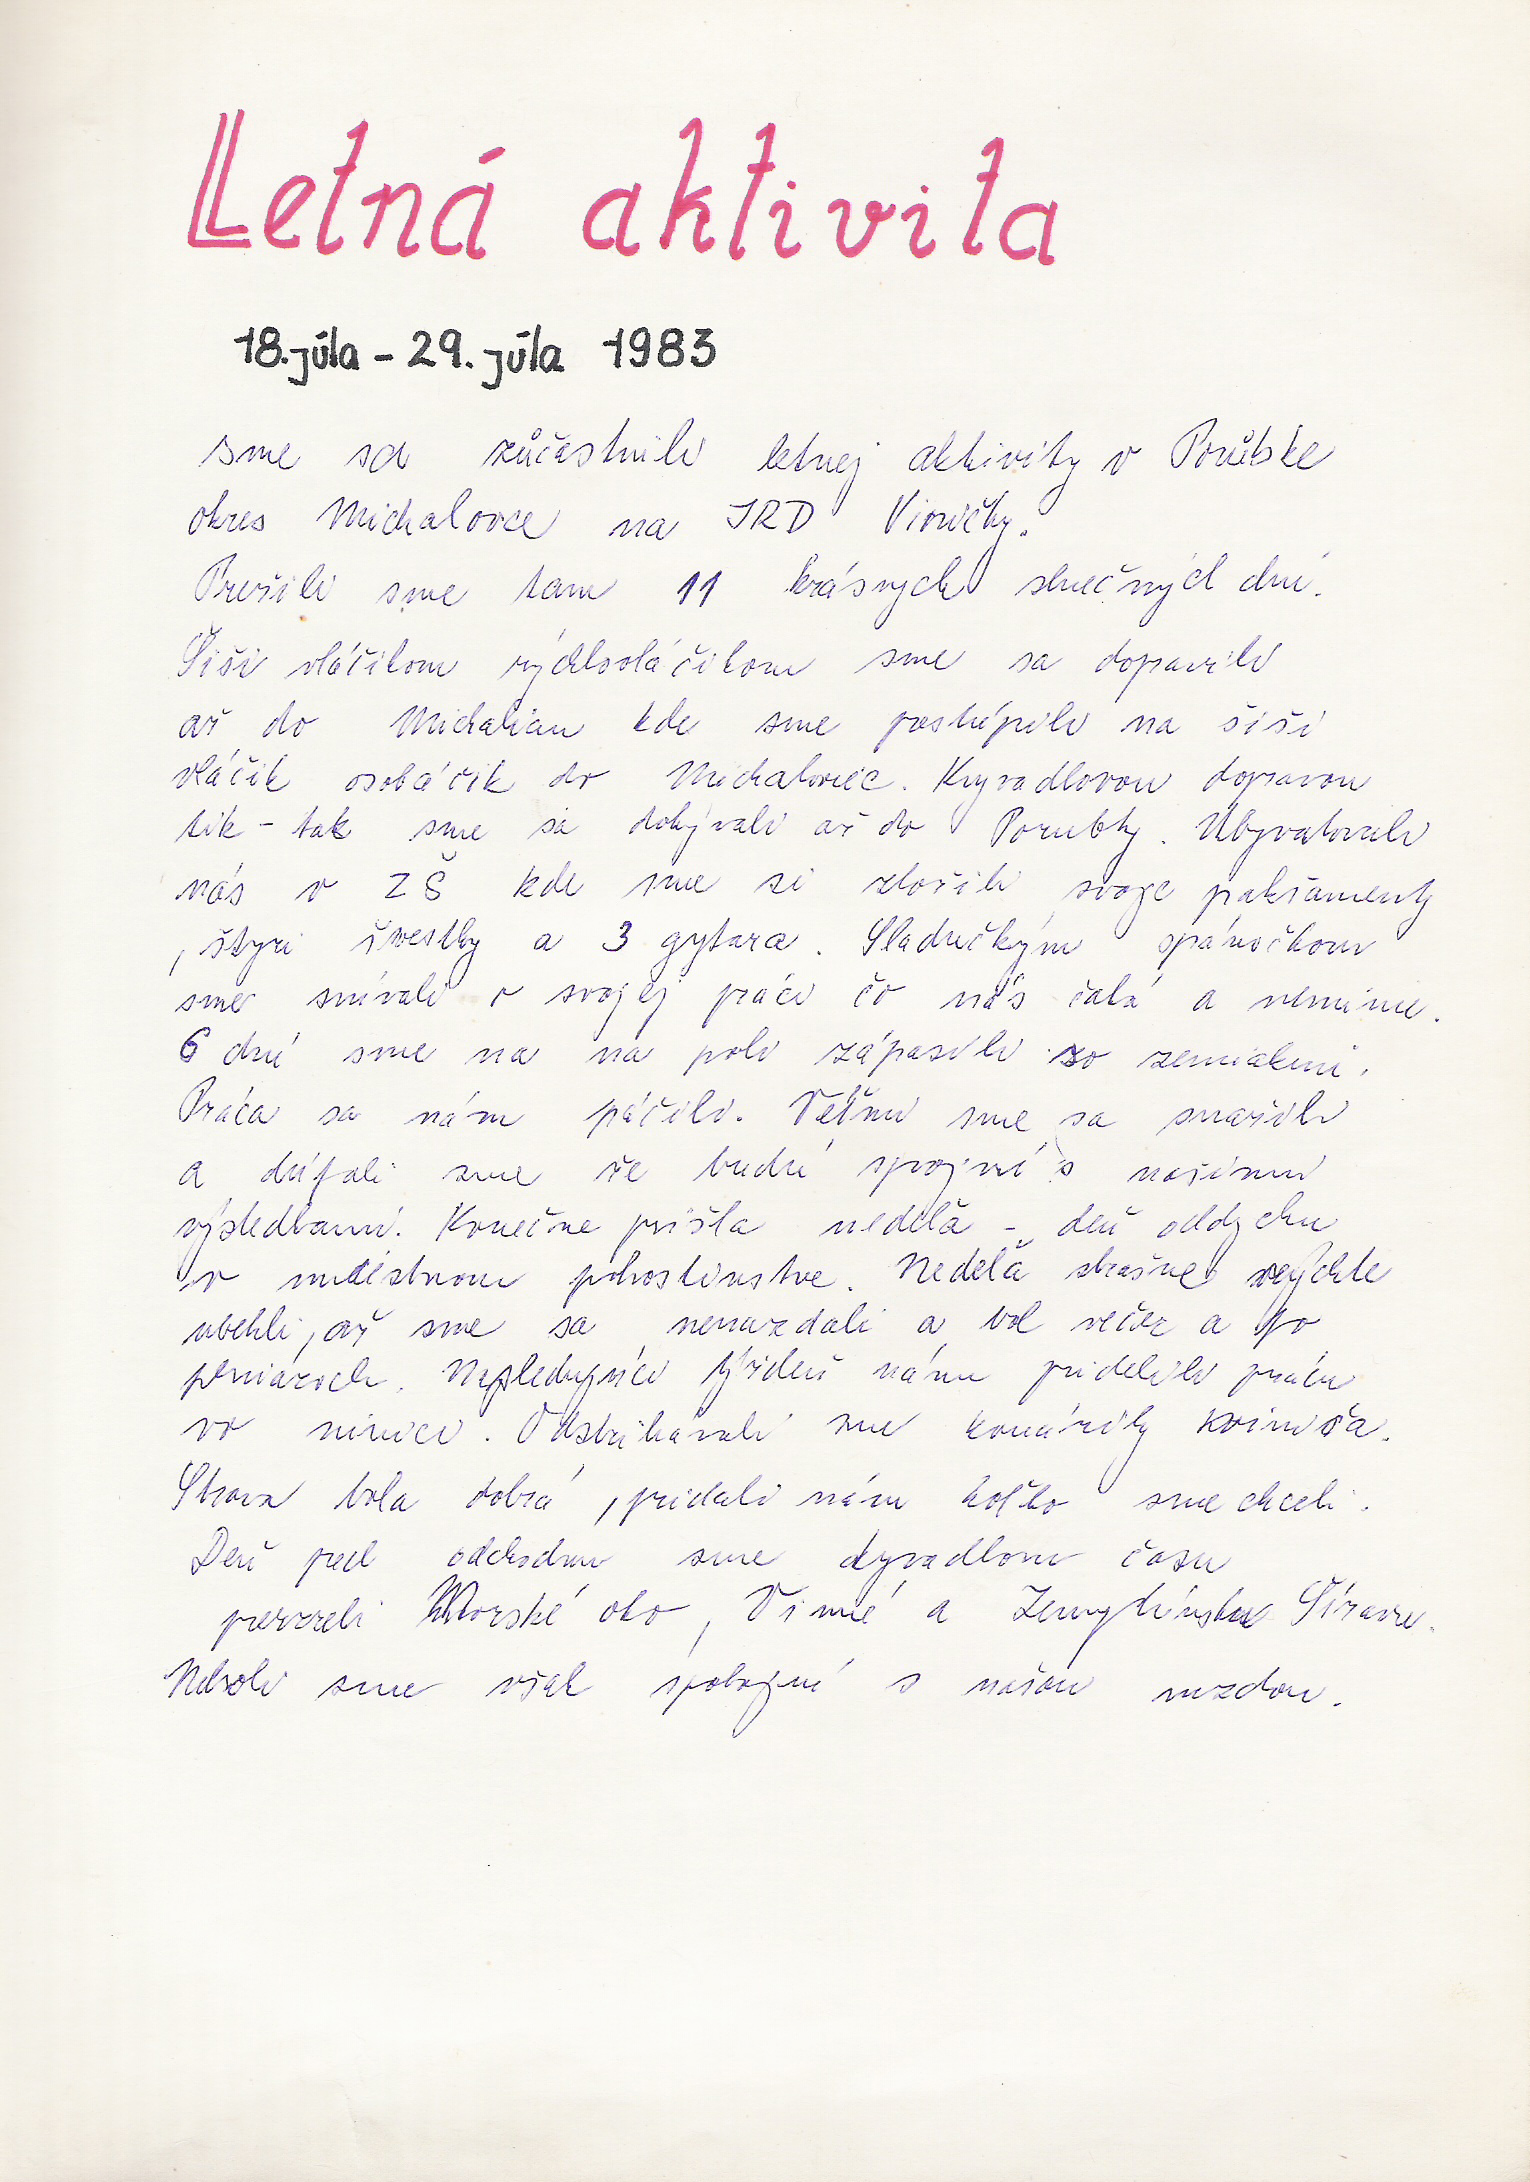 Letná aktivita
18. júla - 29. júla 1983
sme sa zůčastnili letnej aktivity v Porúbke
okres Michalovce na JRD Viničky.
Prežili sme tam 11 krásnych slnečných dní.
Šiši vláčikom rýchlovláčikom sme sa dopravili
až do Michalian kde sme prestúpili na šiši
vláčik osobáčik do Michaloviec. Kyvadlovou dopravou
tik - tak sme sa dobývali až do Porubky. Ubytovali
nás v ZŠ kde sme si zložili svoje pakšamenty
, štyri švestky a 3 gytara. Sladučkým spánočkom
sme snívali o svojej práci čo nás čaká a neminie.
6 dní sme na na poli zápasili zo zemiakmi.
Práca sa nám páčili. Velmi sme sa snažili
a dúfali sme že budú spojní s našimi
výsledkami. Konečne prišla nedeľa - deň oddychu
v miestnom pohostinstve. Nedeľa strašne rýchle
ubehli, až sme sa nenazdali a bol večer a po
peniazoch. Nasledujúci týždeň nám pridelili prácu
vo vinici. Odstrihávali sme konáriky viniča.
Strava bola dobrá, pridali nám koľko sme chceli.
Deň pred odchodom sme kyvadlom času
prezreli Morské oko, Vinné a Zemplínsku Šíravu.
Neboli sme však spokojní s našou mzdou.